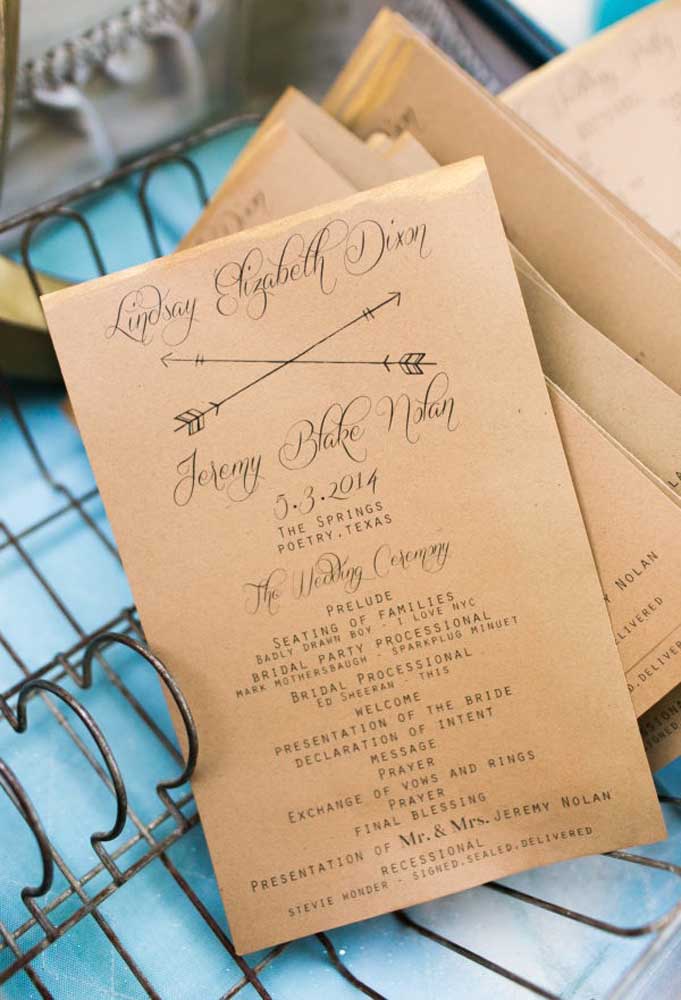 Lindsay Elizabeth Dixon
Jeremy Blake Nolan
5.3.2014
THE SPRINGS
POETRY, TEXAS
The Wedding Ceremony
PRELUDE
SEATING OF FAMILIES
BADLY DRAWN BOY - I LOVE NYC
BRIDAL PARTY PROCESSIONAL
MARK MOTHERSBAUGH - SPARKPLUG MINUET
BRIDAL PROCESSIONAL
ED SHEERAN - THIS
WELCOME
PRESENTATION OF THE BRIDE
DECLARATION OF INTENT
MESSAGE
PRAYER
EXCHANGE OF VOWS AND RINGS
PRAYER
FINAL BLESSING
PRESENTATION OF Mr. & Mrs. JEREMY NOLAN
RECESSIONAL
STEVIE WONDER - SIGNED.SEALED.DELIVERED
NOLAN
D.DELIVERED
SIGNED